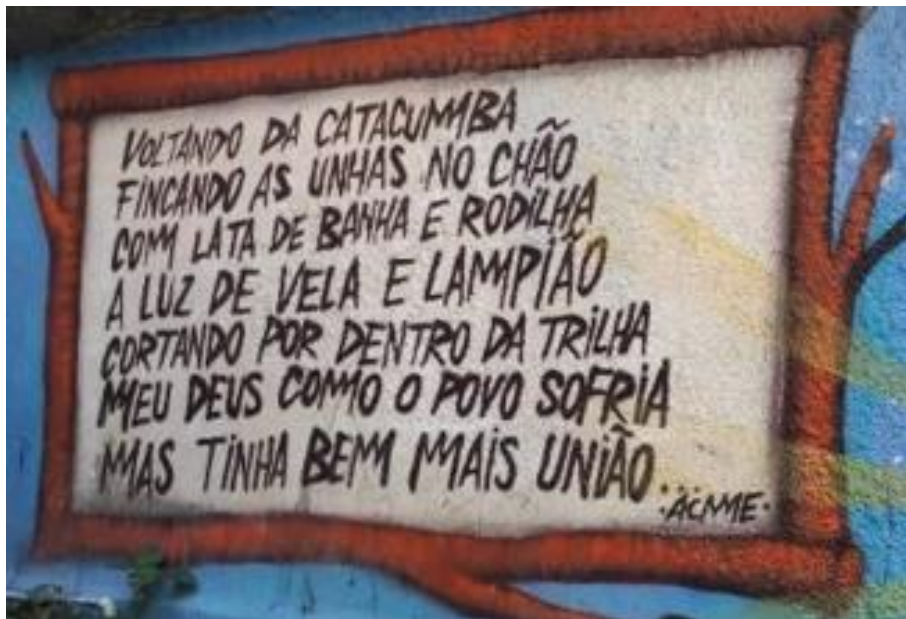 VOLTANDO DA CATACUMBA
FINCANDO AS UNHAS NO CHÃO
COM LATA DE BANHA E RODILHA
A LUZ DE VELA E LAMPIÃO
CORTANDO POR DENTRO DA TRILHA
MEU DEUS COMO O POVO SOFRIA
MAS TINHA BEM MAIS UNIÃO...
·ACME·